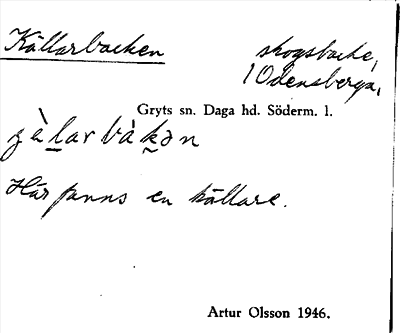 Källarbacken
skogsbacke,
1 Odensberga,
Gryts sn. Daga hd. Söderm. l.
Här fanns en källare.
Artur Olsson 1946.